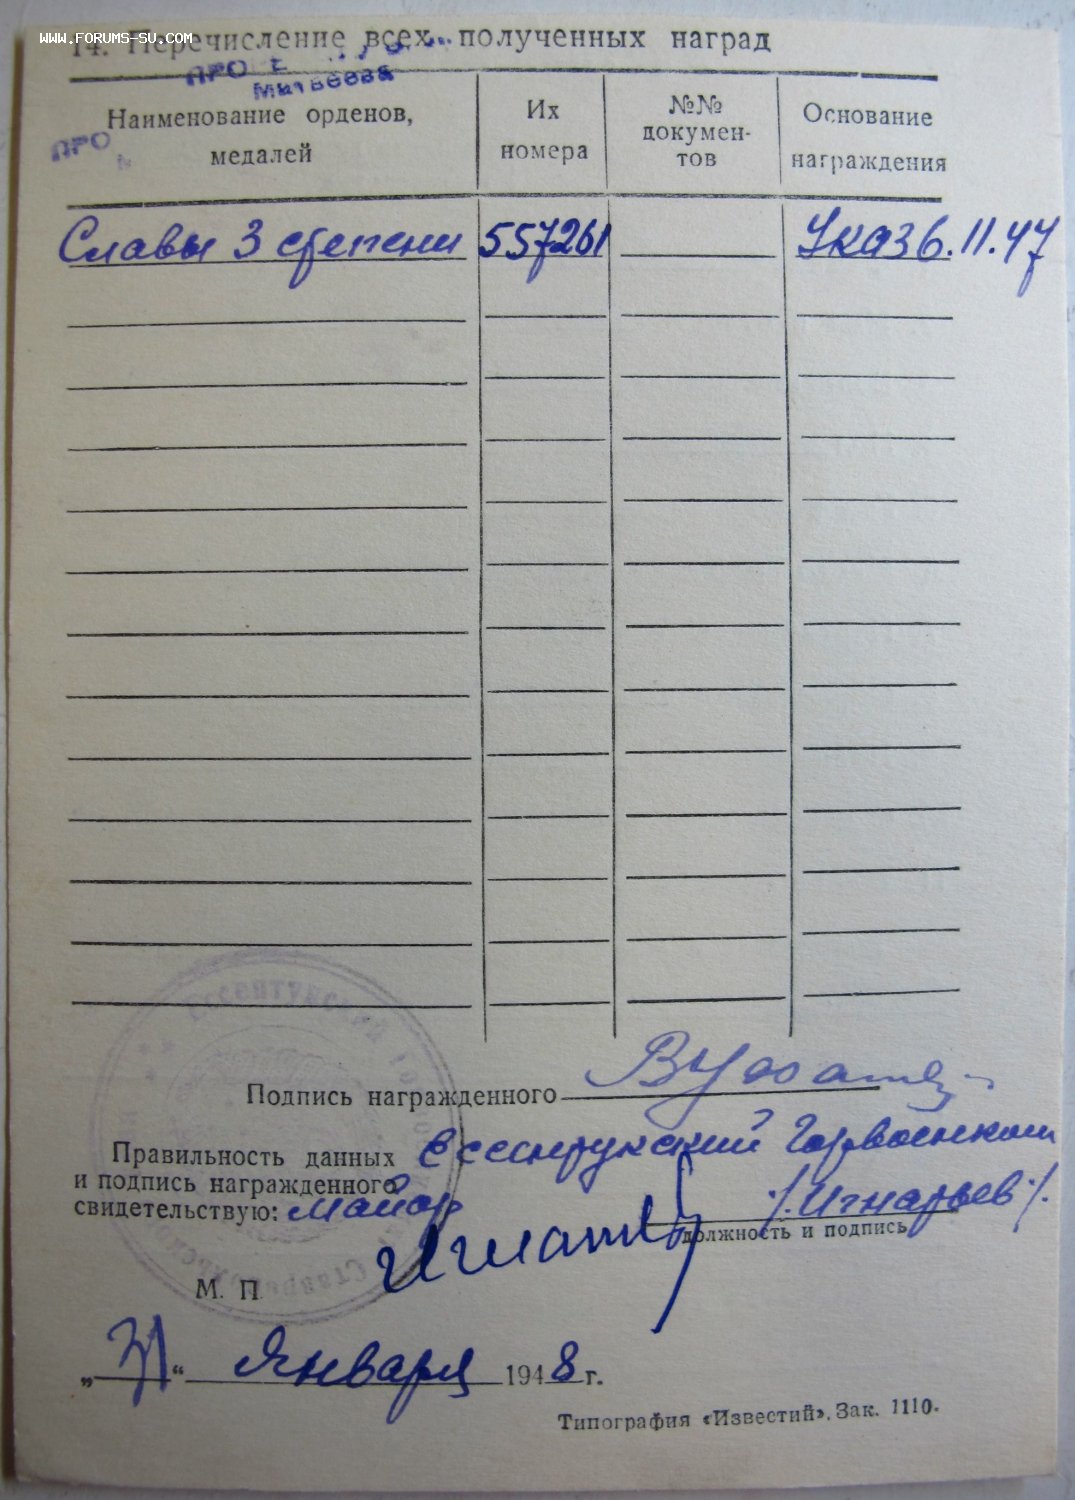 www.forums-su.com
14. Перечисление всех полученных наград
ПРО
Матвеева
ПРО
Наименование орденов, медалей
Их номера
№№ докумен-тов
Основание награждения
Славы 3 степени 557261 Указ 6.11.47
Подпись награжденного
Правильность данных Ессентукский Горвоенком
и подпись награжденного
свидетельствую: Майор /Игнатьев/.
должность и подпись
М. П.
„31“ Января 1948 г.
Типография «Известий». Зак. 1110.